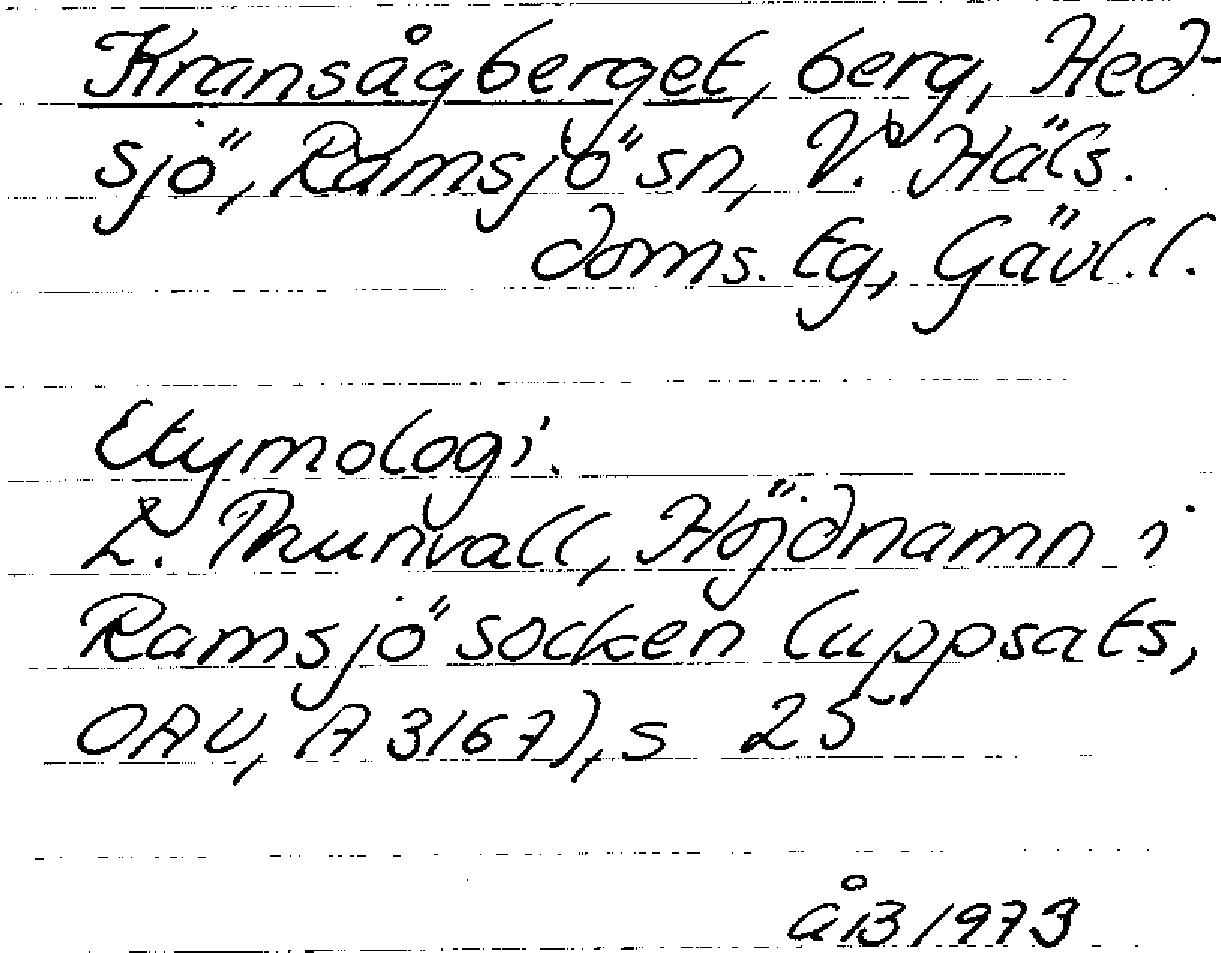 Kransågberget, berg, Hed-
sjö, Ramsjö sn, V. Häls.
doms. tg, Gävl. l.
Etymologi.
L. Thunvall, Höjdnamn i
Ramsjö socken (uppsats,
OAU, A 3167), s 25
åB 1973